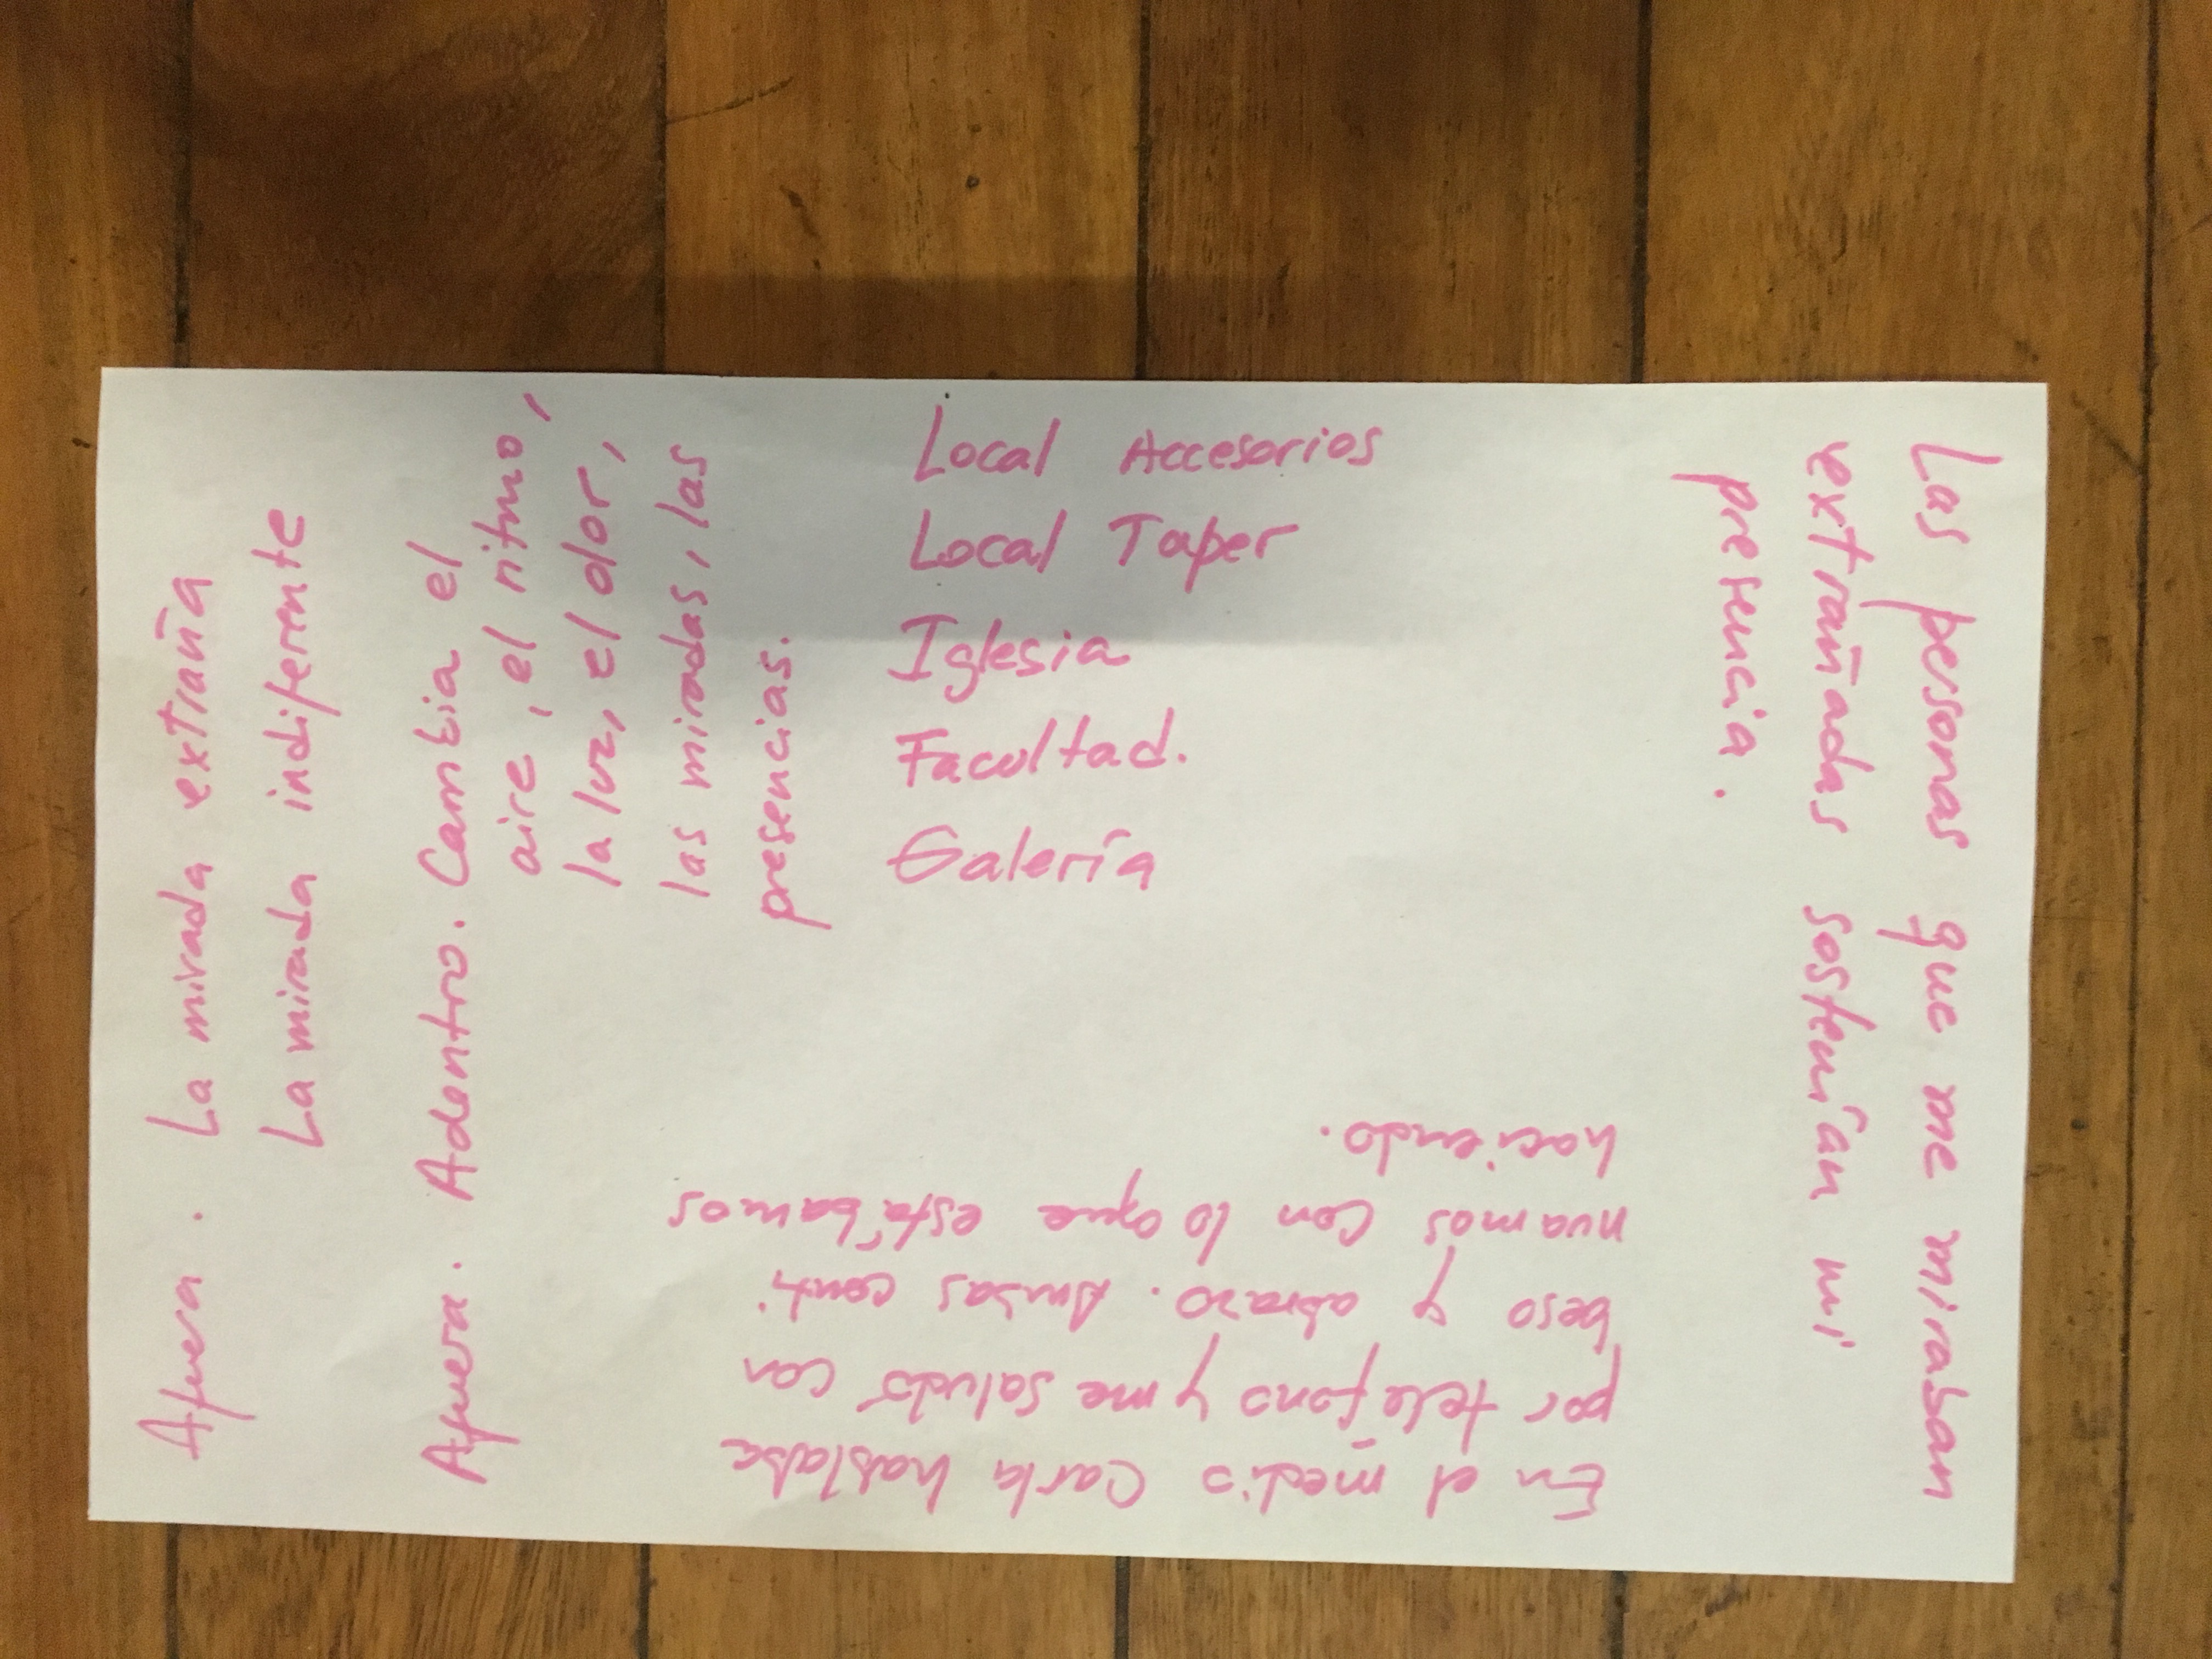 Afuera. La mirada extraña
La mirada indiferente
Afuera. Adentro. Cambia el
aire, el ritmo,
la luz, el olor,
las miradas, las
presencias.
Local Accesorios
Local Taper
Iglesia
Facultad.
Galería
En el medio Carla hablaba
por teléfono y me saludó con
beso y abrazo. Ambas conti
nuamos con lo que estábamos
haciendo.
Las personas que me miraban
extrañadas sostenían mi
presencia.